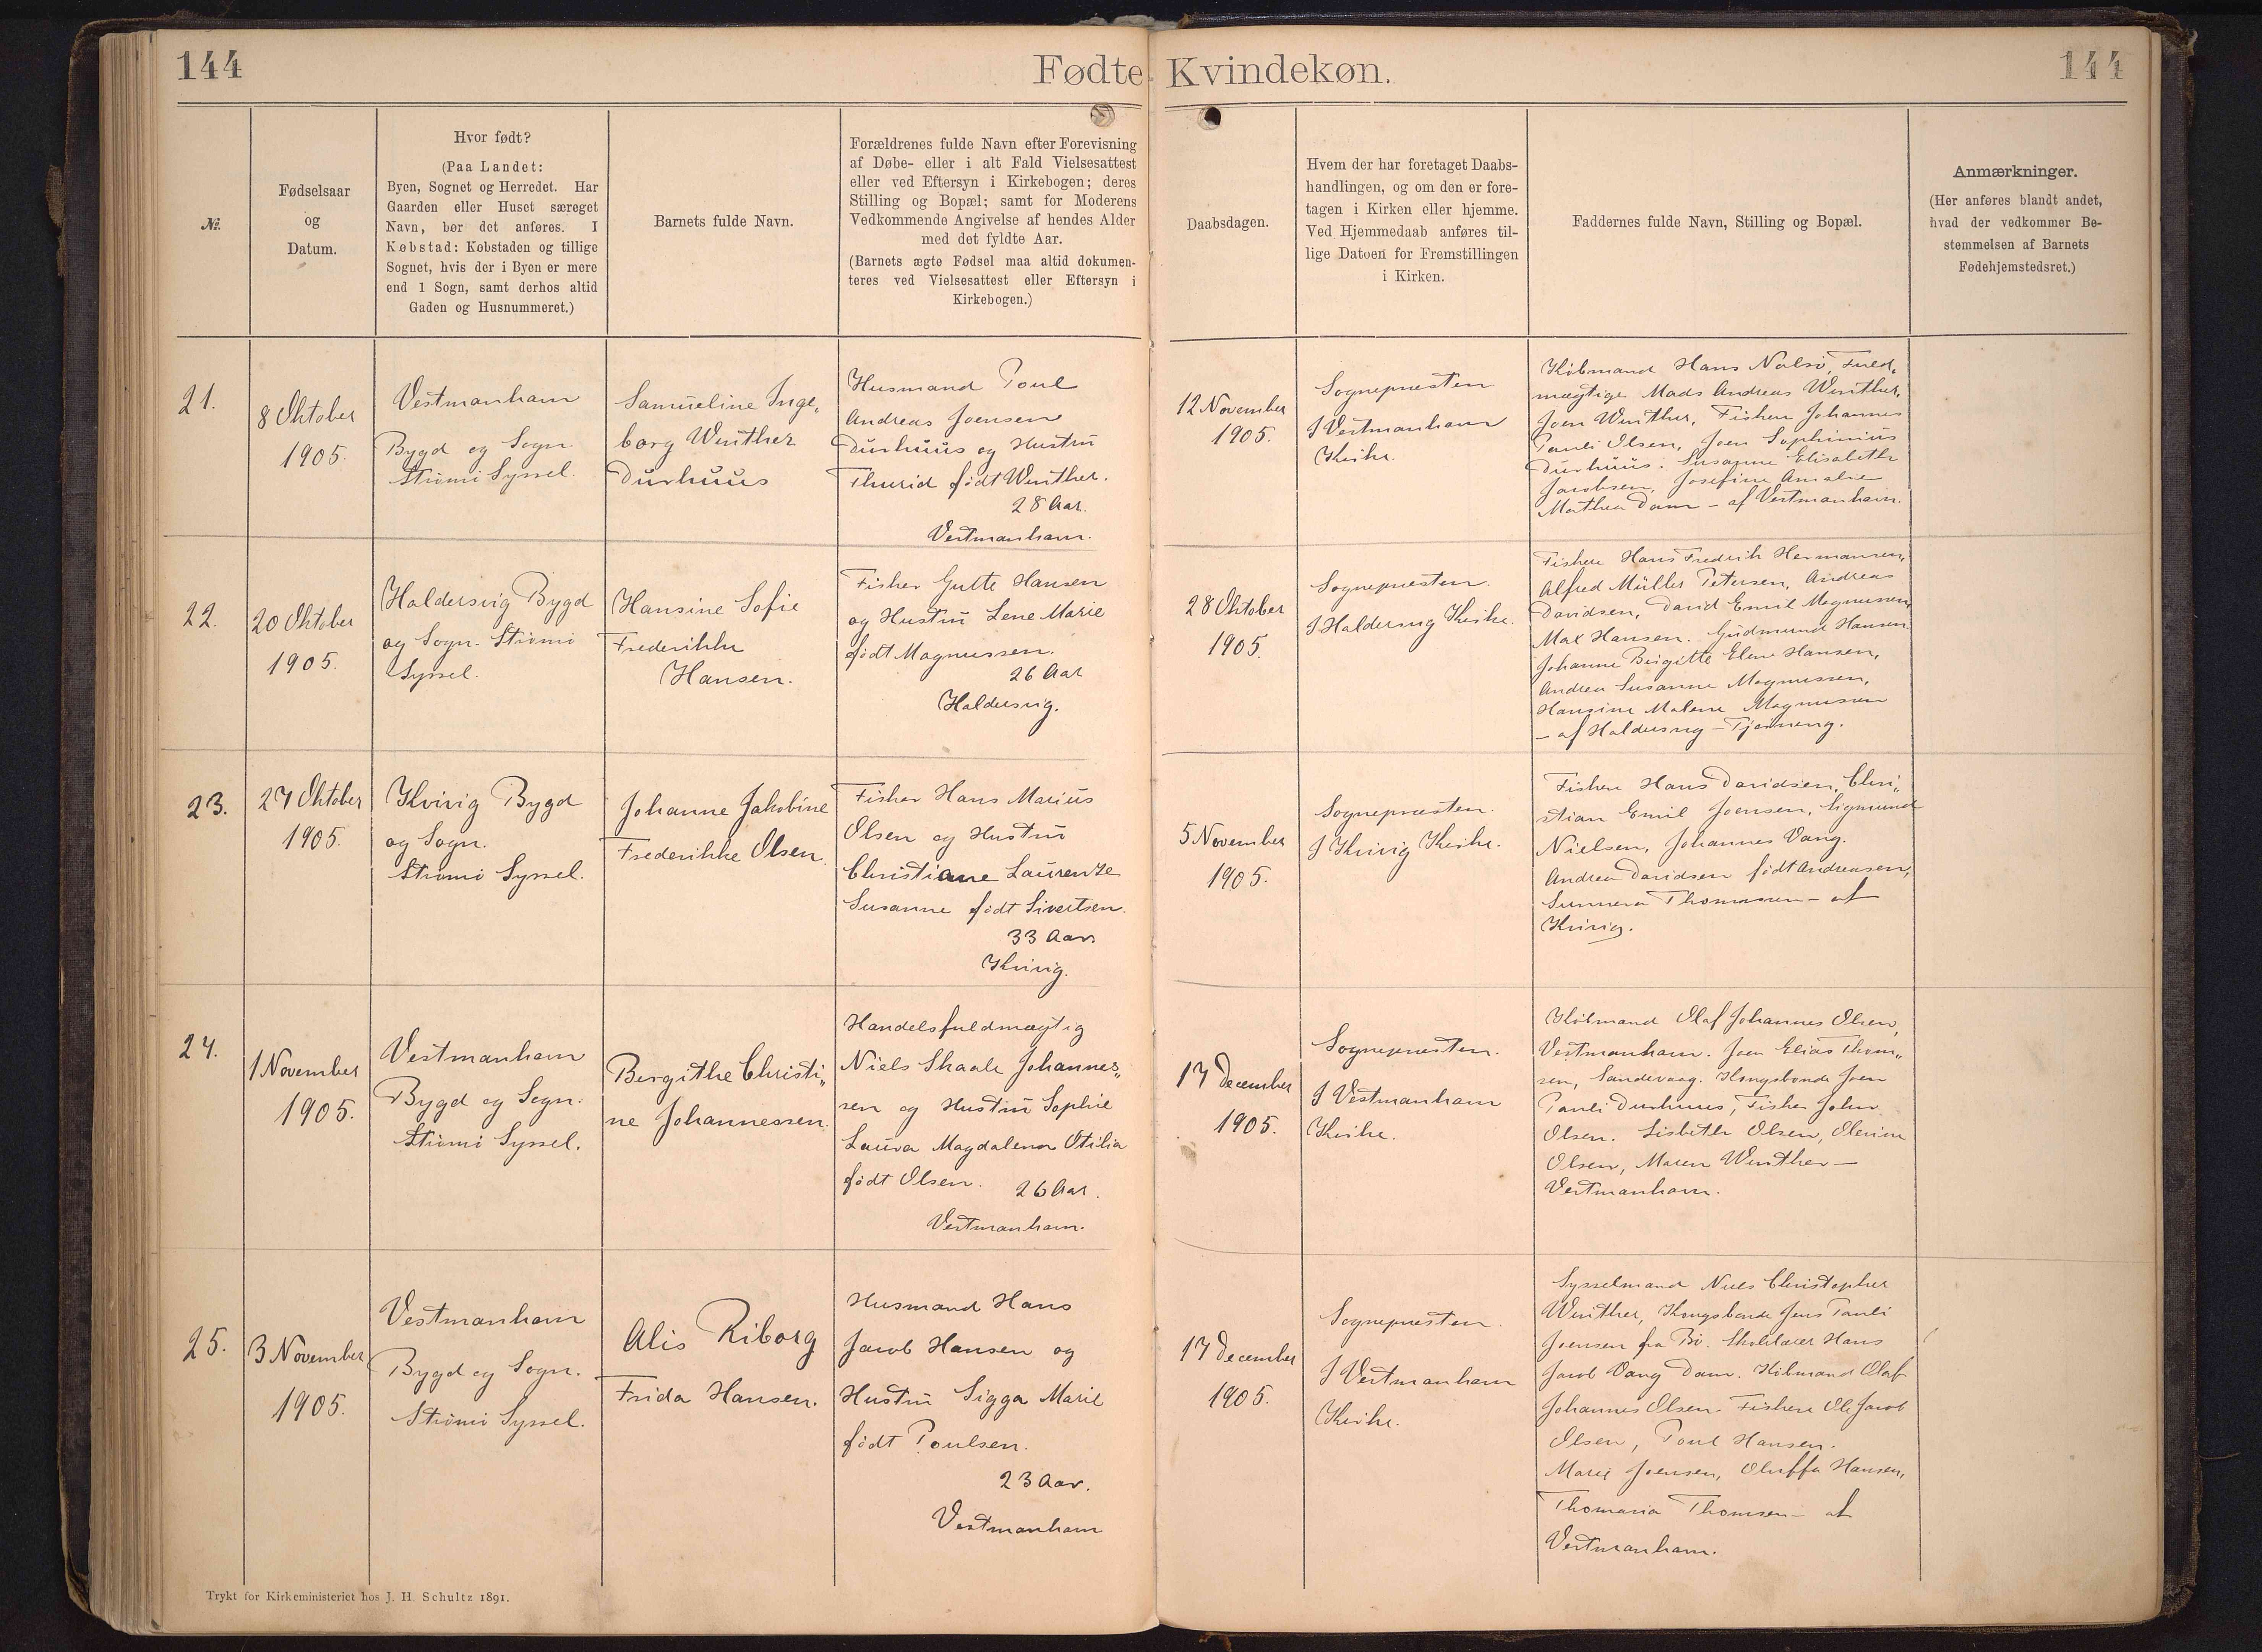 144
Fødte Kvindekøn.
144
Nr.
Fødselsaar
og
Datum.
Hvor født?
(Paa Landet:
Byen, Sognet og Herredet. Har
Gaarden eller Huset særeget
Navn, bør det anføres. I
Købstad: Købstaden og tillige
Sognet, hvis der i Byen er mere
end 1 Sogn, samt derhos altid
Gaden og Husnummeret.)
Barnets fulde Navn.
Forældrenes fulde Navn efter Forevisning
af Døbe- eller i alt Fald Vielsesattest
eller ved Eftersyn i Kirkebogen; deres
Stilling og Bopæl; samt for Moderens
Vedkommende Angivelse af hendes Alder
med det fyldte Aar.
(Barnets ægte Fødsel maa altid dokumen-
teres ved Vielsesattest eller Eftersyn i
Kirkebogen.)
Daabsdagen.
Hvem der har foretaget Daabs-
handlingen, og om den er fore-
tagen i Kirken eller hjemme.
Ved Hjemmedaab anføres til-
lige Datoen for Fremstillingen
i Kirken.
Faddernes fulde Navn, Stilling og Bopæl.
Anmærkninger.
(Her anføres blandt andet,
hvad der vedkommer Be-
stemmelsen af Barnets
Fødehjemstedsret.)
21.
8 Oktober
1905.
Vestmanhavn
Bygd og Sogn.
Strömö Syssel.
Samueline Inge„
borg Winther
Durhuus
Husmand Poul
Andreas Joensen
Durhuus og Hustru
Thurid født Winther.
28 Aar.
Vestmanhavn.
12 November
1905.
Sognepræsten
I Vestmanhavn
Kirke.
Köbmand Hans Nolsö, Fuld„
mægtige Mads Andreas Winther,
Joen Winther, Fiskere Johannes
Pauli Olsen, Joen Sophinius
Durhuus. Susanne Elisabeth
Jacobsen, Josefine Amalie
Mathea Dam – af Vestmanhavn.
22.
20 Oktober
1905.
Haldersvig Bygd
og Sogn. Strömö
Syssel.
Hansine Sofie
Frederikke
Hansen.
Fisker Gutte Hansen
og Hustru Lene Marie
født Magnussen.
26 Aar
Haldersvig.
28 Oktober
1905.
Sognepræsten.
I Haldersvig Kirke.
Fiskere Hans Fredrik Hermansen,
Alfred Müller Petersen, Andreas
Davidsen, David Emil Magnussen,
Max Hansen. Gudmund Hansen.
Johanne Birgitte Elene Hansen,
Andrea Susanne Magnussen,
Hansine Malene Magnussen
– af Haldersvig – Tjörneng.
23.
27 Oktober
1905.
Kvivig Bygd
og Sogn.
Strömö Syssel.
Johanne Jakobine
Frederikke Olsen.
Fisker Hans Marius
Olsen og Hustru
Christiane Laurenze
Susanne født Sivertsen.
33 Aar.
Kvivig.
5 November
1905.
Sognepræsten.
I Kvivig Kirke.
Fiskere Hans Davidsen, Chri„
stian Emil Joensen, Sigmund
Nielsen, Johannes Vang.
Andrea Davidsen født Andreasen,
Sunneva Thomassen – af
Kvivig.
24.
1 November
1905.
Vestmanhavn
Bygd og Sogn.
Strömö Syssel.
Bergithe Christi„
ne Johannessen.
Handelsfuldmægtig
Niels Skaale Johannes„
sen og Hustru Sophie
Laura Magdalena Otilia
født Olsen. 26 Aar.
Vestmanhavn.
17 December
1905.
Sognepræsten.
I Vestmanhavn
Kirke.
Köbmand Olaf Johannes Olsen,
Vestmanhavn. Joen Elias Thom„
sen, Sandevaag. Kongsbonde Joen
Pauli Durhuus, Fisker John
Olsen. Lisbeth Olsen, Olevine
Olsen, Maren Winther –
Vestmanhavn.
25.
3 November
1905.
Vestmanhavn
Bygd og Sogn.
Strömö Syssel.
Alis Riborg
Frida Hansen.
Husmand Hans
Jacob Hansen og
Hustru Sigga Marie
født Poulsen.
23 Aar.
Vestmanhavn
17 December
1905.
Sognepræsten.
I Vestmanhavn
Kirke.
Sysselmand Niels Christopher
Winther, Kongsbonde Jens Pauli
Joensen fra Bö. Skolelærer Hans
Jacob Vang Dam. Köbmand Olaf
Johannes Olsen. Fiskere Ole Jacob
Olsen, Poul Hansen.
Marie Joensen, Oluffa Hansen,
Thomasia Thomsen – af
Vestmanhavn.
Trykt for Kirkeministeriet hos J. H. Schultz 1891.